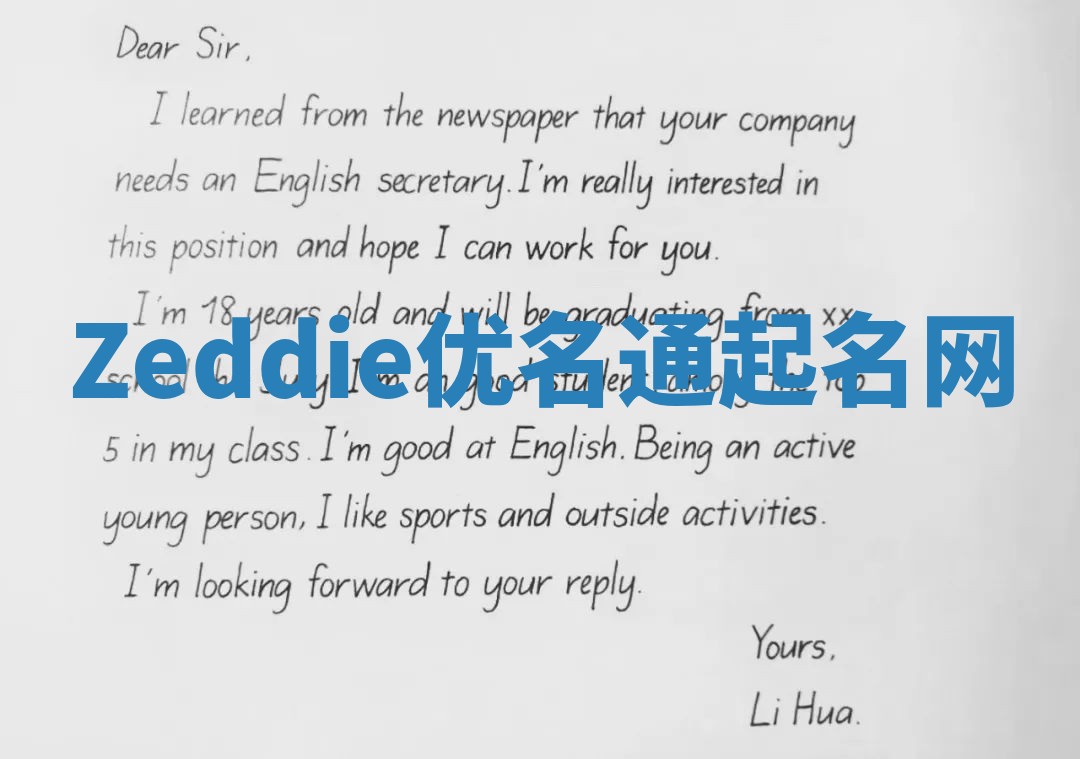 Dear Sir,
I learned from the newspaper that your company
needs an English secretary. I'm really interested in
this position and hope I can work for you.
I'm 18 years old and will be graduating from xx
Zeddie优名通起名网
school I'm good student top
5 in my class. I'm good at English. Being an active
young person, I like sports and outside activities.
I'm looking forward to your reply.
Yours,
Li Hua.